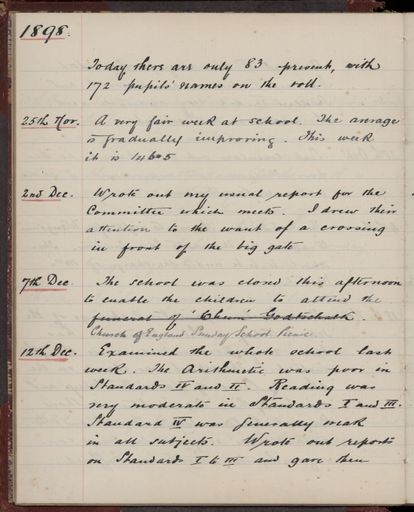 1898.
Today there are only 83 present, with
172 pupils' names on the roll.
25th Nov. A very fair week at school. The average
is gradually improving. This week
it is 146.5
2nd Dec. Wrote out my usual report for the
Committee which meets. I drew their
attention to the want of a crossing
in front of the big gate
7th Dec. The school was closed this afternoon
to enable the children to attend the
funeral of Godtschalk.
Church of England Sunday School Picnic.
12th Dec. Examined the whole school last
week. The Arithmetic was poor in
Standards IV and II. Reading was
very moderate in Standards I and III.
Standard IV was generally weak
in all subjects. Wrote out reports
on Standards I to III and gave them